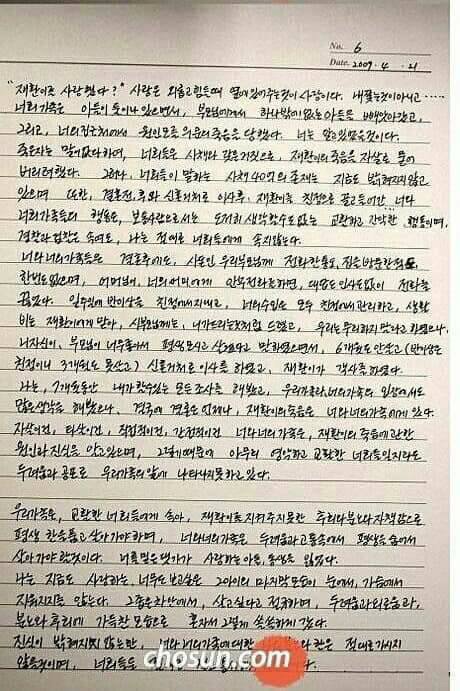 No. 6
Date. 2009. 4. 21
"재환이를 사랑했다?" 사랑은 외롭고 힘들때 옆에 있어주는것이 사랑이다. 내쫓는것이 아니고 ·····
너희 가족은 아들이 둘이나 있으면서, 부모님에게서 하나밖에 없는 아들을 빼앗아갔고,
그리고, 너희 집 근처에서 원인모를 의문의 죽음을 당했다. 너는 알고있었을것이다.
죽은자는 말이 없다하여, 너희들은 사채와 같은것으로, 재환이의 죽음을 자살로 몰아
버리려했다. 그러나, 너희들이 말하는 사채 40억의 존재는 지금도 밝혀지지않고
있으며 또한, 결혼전,후와 신혼거처로 이사후, 재환이를 친정으로 끌고들어간 너와
너희가족들의 행동은, 보통사람으로서는 도저히 생각할수도없는 교활하고 잔악한 행동이며,
경찰과 검찰은 속여도, 나는 절대로 너희들에게 속지않는다.
너와 너희가족은 결혼후에도, 시댁인 우리부모님께 전화한통도, 집을 방문한적도
한번도없으며, 어머님이, 너의 어머니에게 안부전화라도하면, 대답도 인사도없이 전화를
끊었다. 일주일에 반이상을 친정에서지내고, 너의수입은 모두 친정에서 관리하고, 생활
비는 재환이에게 받아, 시부모님께는, 네가드리는것처럼 드렸고, 우리는 우리하지 말라고 하였으나,
네자신이, 부모님이 너무좋아서 평생 모시고 살겠다고 말하였으면서, 6개월도 안살고 (반이상은
친정이니 3개월도 못살고) 신혼거처로 이사를 하였고, 재환이가 객사를하였다.
나는, 7개월동안 내가할수있는 모든조사를 해봤고, 우리가족과, 너희가족의 입장에서도
많은생각을 해봤으나, 결국에 결론은 언제나, 재환이의죽음은 너와 너희가족에게 있다.
자살이건, 타살이건, 직접적이건, 간접적이건 너와 너의가족은, 재환이의 죽음에관한
원인과 진실을 알고있으며, 그렇게때문에 아무리 영악하고 교활한 너희들일지라도
두려움과 공포로 우리가족의앞에 나타나지못하고있다.
우리가족은, 교활한 너희들에게 속아, 재환이를 지켜주지못한 후회와분노와 자책감으로
평생 한을품고살아가야하며, 너와너의가족은 두려움과고통속에서 평생을 숨어서
살아가야할것이다. 너를믿은댓가가 사랑하는아들,동생을 잃었다.
나는 지금도 사랑하는, 너무도보고싶은 그아이의 마지막모습이 눈에서, 가슴에서
지워지지를 않는다. 그좁은차안에서, 살고싶다고 절규하며, 두려움과외로움과,
분노와 후회에 가득찬모습으로 혼자서 그렇게 쓸쓸하게 갔다.
진실이 밝혀지지 않는한, 너와 너의가족에대한 한은 절대로가시지
않을것이며, 너희들을
chosun.com